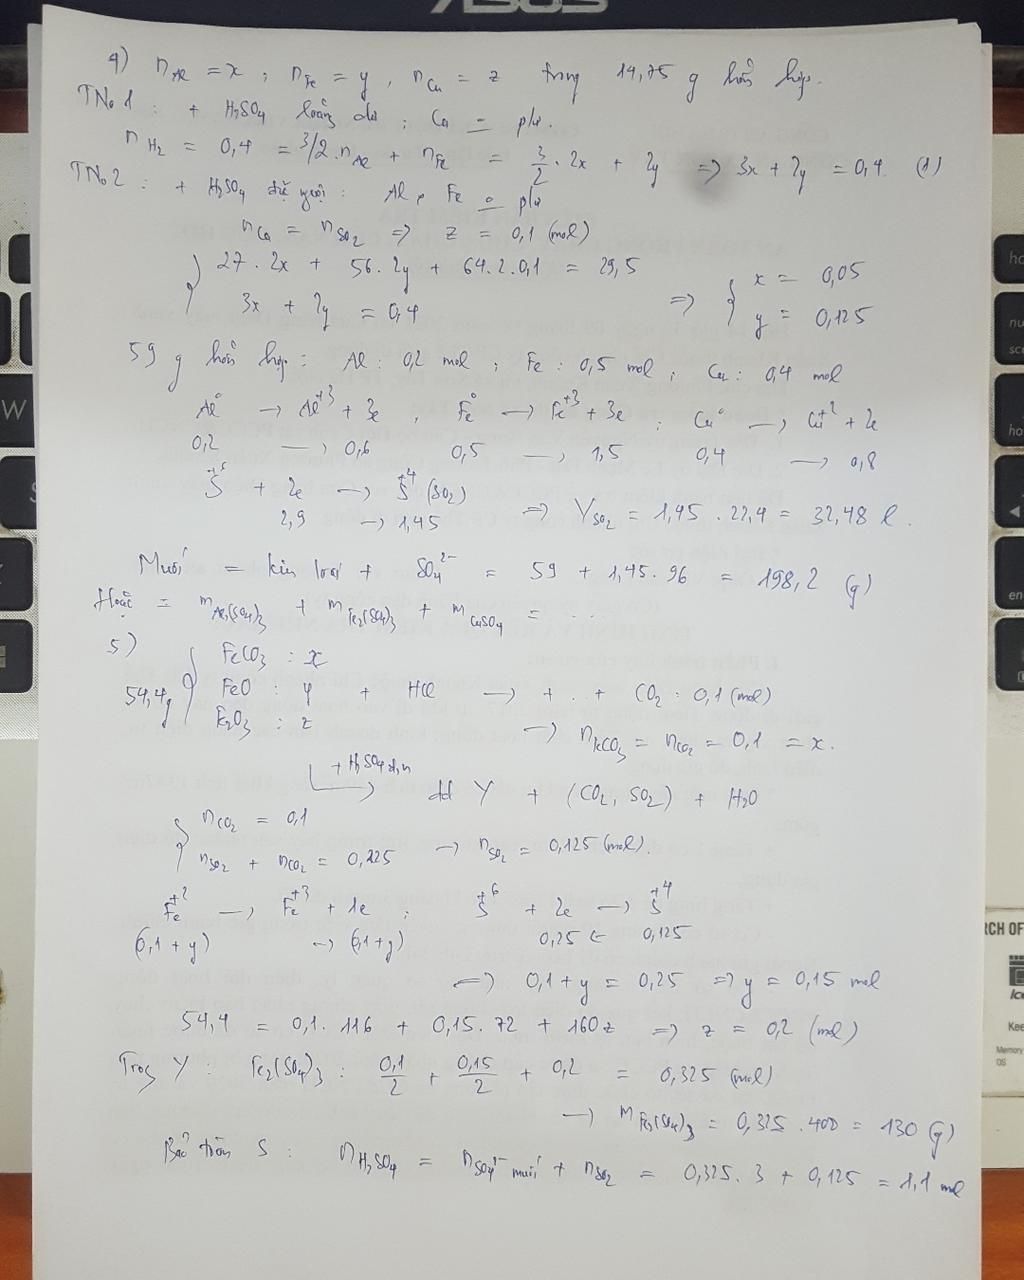 ASUS
4) nAl = x ; nFe = y , nCu = z trong 14,75 g hỗn hợp.
TNo1 : + H2SO4 loãng dư ; Cu ko pư.
nH2 = 0,4 = 3/2 . nAl + nFe = 3/2 . 2x + 2y => 3x + 2y = 0,4 (1)
TNo2 : + H2SO4 đặc nguội : Al, Fe ko pư
nCu = nSO2 => z = 0,1 (mol)
{ 27 . 2x + 56 . 2y + 64 . 2 . 0,1 = 29,5
3x + 2y = 0,4 => { x = 0,05
y = 0,125
59 g hỗn hợp : Al : 0,2 mol ; Fe : 0,5 mol ; Cu : 0,4 mol
Al⁰ → Al⁺³ + 3e , Fe⁰ → Fe⁺³ + 3e ; Cu⁰ → Cu⁺² + 2e
0,2 → 0,6 0,5 → 1,5 0,4 → 0,8
S⁺⁶ + 2e → S⁺⁴ (SO2)
2,9 → 1,45 => VSO2 = 1,45 . 22,4 = 32,48 l .
Muối = kim loại + SO4²⁻ = 59 + 1,45 . 96 = 198,2 (g)
Hoặc = mAl2(SO4)3 + mFe2(SO4)3 + mCuSO4 = ..
5)
54,4g { FeCO3 : x
FeO : y + HCl → + .. + CO2 : 0,1 (mol)
Fe2O3 : z → nFeCO3 = nCO2 = 0,1 = x .
+ H2SO4 đ,n → dd Y + (CO2, SO2) + H2O
{ nCO2 = 0,1
nSO2 + nCO2 = 0,225 → nSO2 = 0,125 (mol).
Fe⁺² → Fe⁺³ + 1e ; S⁺⁶ + 2e → S⁺⁴
(0,1 + y) → (0,1 + y) 0,25 ← 0,125
=> 0,1 + y = 0,25 => y = 0,15 mol
54,4 = 0,1 . 116 + 0,15 . 72 + 160z => z = 0,2 (mol)
Trong Y : Fe2(SO4)3 : 0,1/2 + 0,15/2 + 0,2 = 0,325 (mol)
→ mFe2(SO4)3 = 0,325 . 400 = 130 (g)
Bảo toàn S : nH2SO4 = nSO4²⁻ muối + nSO2 = 0,325 . 3 + 0,125 = 1,1 mol